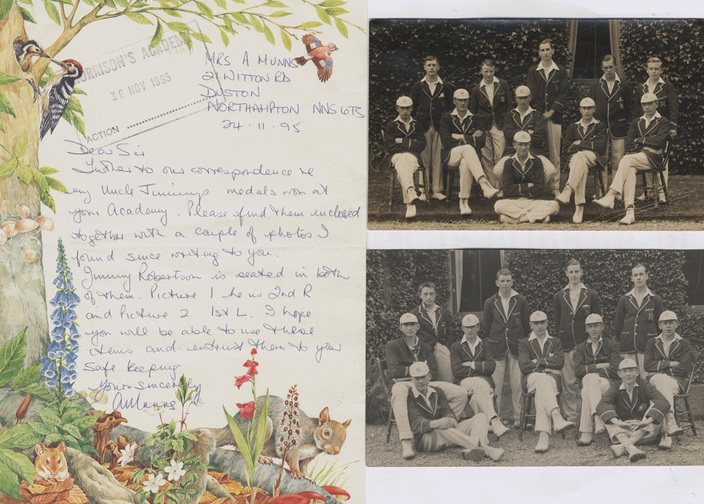 MORRISON'S ACADEMY
30 NOV 1995
ACTION
MRS A MUNNS
21 WITTON RD
DUSTON
NORTHAMPTON NN5 6TS
24.11.95
Dear Sir
Futher to our correspondence re
my Uncle Jimmys medals won at
your Academy. Please find them enclosed
together with a couple of photos I
found since writing to you.
Jimmy Robertson is seated in both
of them. Picture 1 he is 2nd R
and Picture 2 1st L. I hope
you will be able to use these
items and entrust them to your
safe keeping.
Yours Sincerely
A Munns